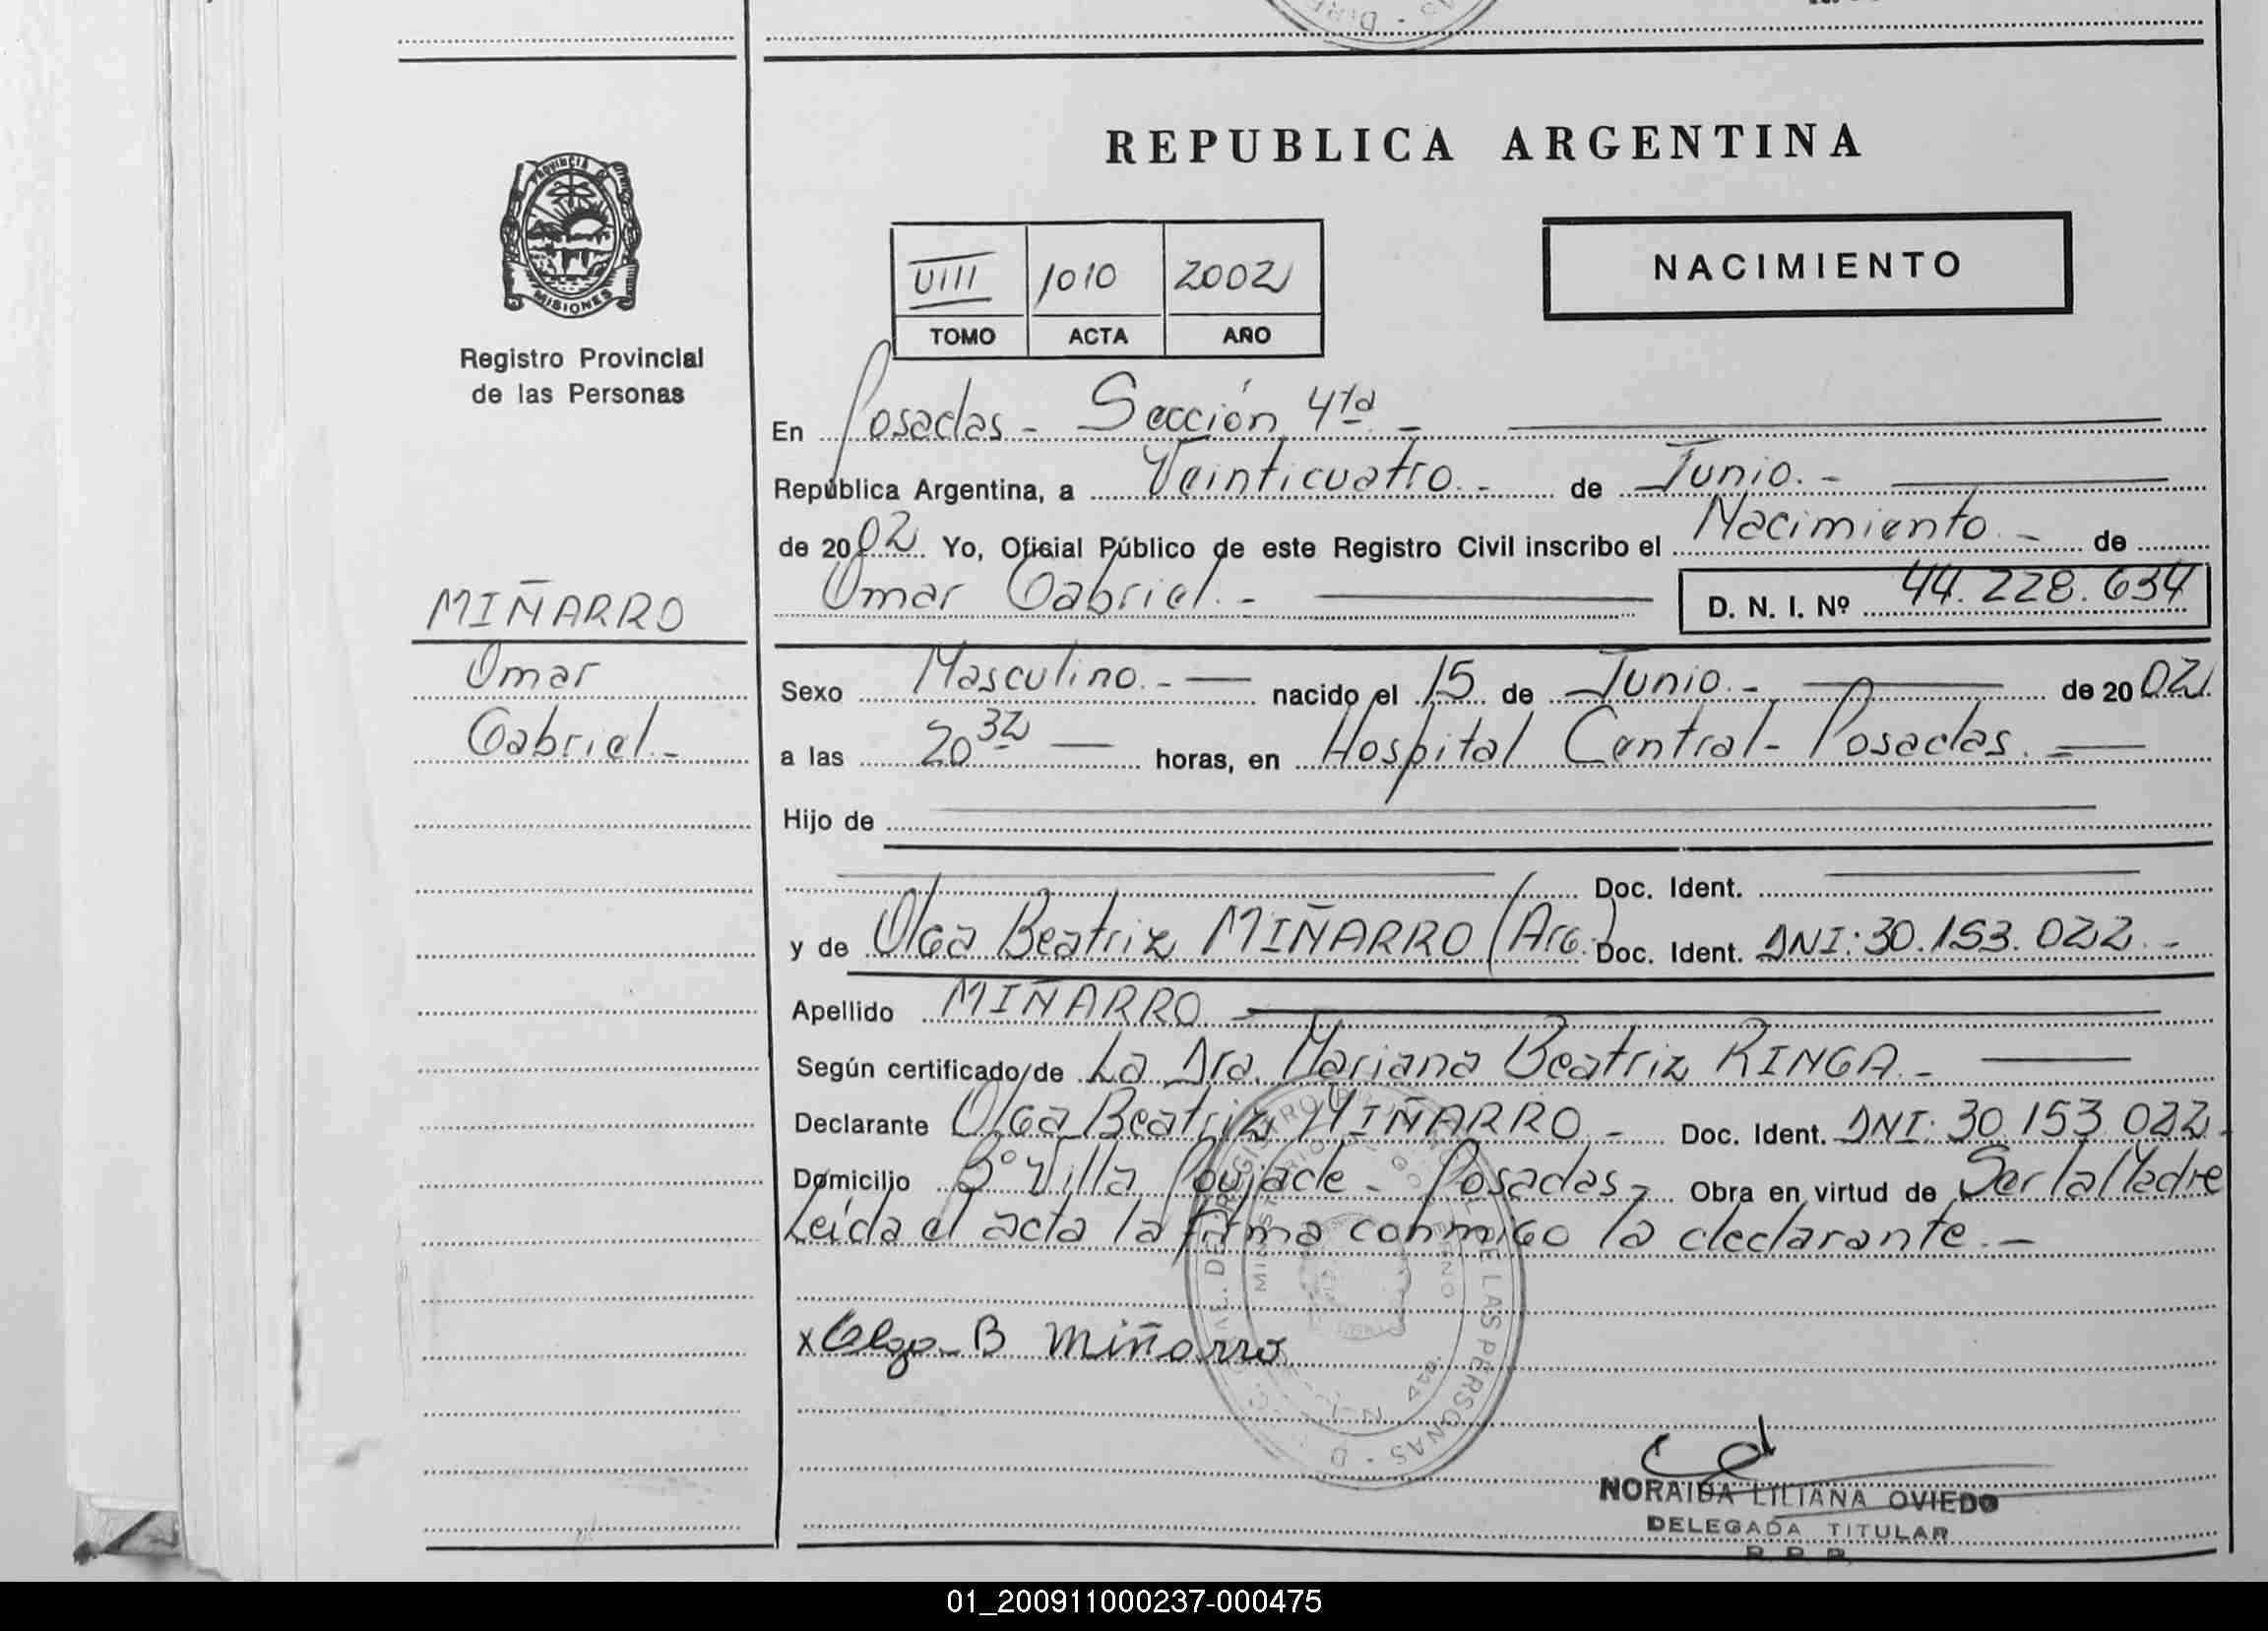 REPUBLICA ARGENTINA
PROVINCIA D
MISIONES
Registro Provincial
de las Personas
VIII 1010 2002
TOMO ACTA AÑO
NACIMIENTO
En Posadas - Sección 4ta -
República Argentina, a Veinticuatro.- de Junio.-
de 2002. Yo, Oficial Público de este Registro Civil inscribo el Nacimiento - de
Omar Gabriel.- D. N. I. Nº 44.228.634
MIÑARRO
Omar
Gabriel.-
Sexo Masculino.- nacido el 15 de Junio.- de 2002.
a las 20 32 horas, en Hospital Central - Posadas.-
Hijo de
Doc. Ident.
y de Olga Beatriz MIÑARRO (Arg.) Doc. Ident. DNI: 30.153.022.-
Apellido MIÑARRO
Según certificado de La Dra. Mariana Beatriz RINGA.-
Declarante Olga Beatriz MIÑARRO.- Doc. Ident. DNI: 30.153.022.
Domicilio Bº Villa Poujade - Posadas - Obra en virtud de Ser la Madre
Leída el acta la firma conmigo la declarante.-
x Olga B Miñarro
NORAIDA LILIANA OVIEDO
DELEGADA TITULAR
R.P.P.
01_200911000237-000475